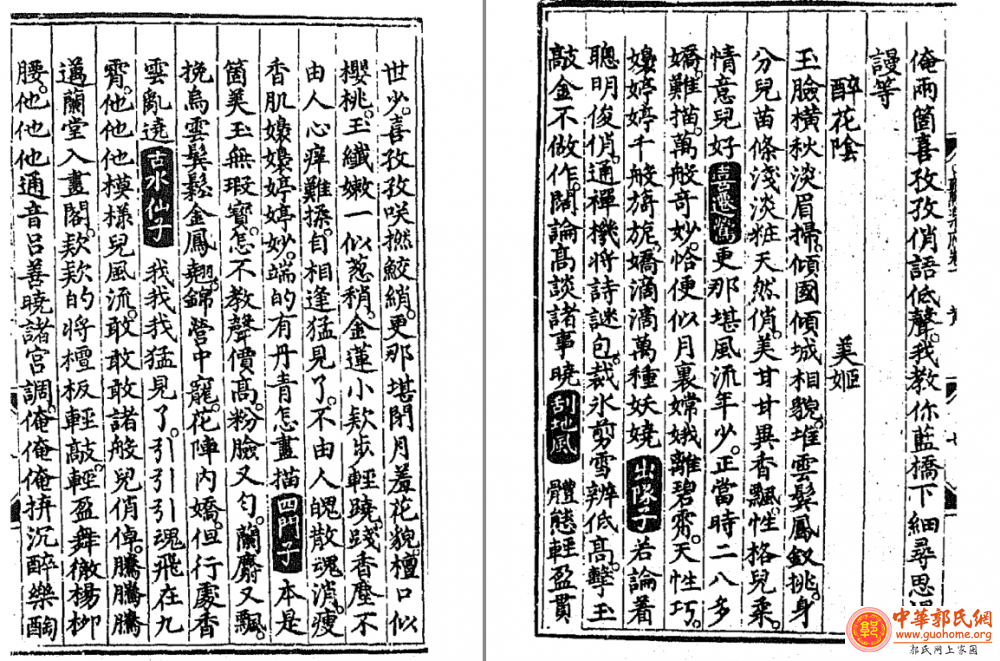 俺兩箇喜孜孜俏語低聲我教你藍橋下細尋思
謾等
醉花陰　美姬
玉臉橫秋淡眉掃傾國傾城相貌堆雲鬂鳳釵挑身
分兒苗條淺淡粧天然俏美甘甘異香飄性格兒乘
情意兒好喜遷鶯更那堪風流年少正當時二八多
嬌難描萬般奇妙恰便似月裏嫦娥離碧霄天性巧
嬝嬝婷婷千般旖旎嬌滴滴萬種妖嬈出隊子若論着
聰明俊俏通禪機將詩謎包裁氷剪雪辨低高擊玉
敲金不做作闊論高談諸事曉刮地風體態輕盈貫
世少喜孜孜咲撚鮫綃更那堪閉月羞花貌檀口似
櫻桃玉纖嫩一似葱稍金蓮小欵步輕蹺踐香塵不
由人心痒難揉自相逢猛見了不由人魄散魂消瘦
香肌嬝嬝婷婷妙端的有丹青怎畫描四門子本是
箇美玉無瑕寶怎不教聲價高粉臉又勻蘭麝又飄
挽烏雲髩鬆金鳳翹錦營中寵花陣內嬌但行處香
雲亂遶古水仙子我我我猛見了引引引魂飛在九
霄他他他模樣兒風流敢敢敢諸般兒俏倬騰騰騰
邁蘭堂入畫閣欵欵的將檀板輕敲輕盈舞徹楊柳
腰他他他通音呂善曉諸宮調俺俺俺拚沉醉樂陶
中華郭氏網
www.guohome.org
郭氏網上家園